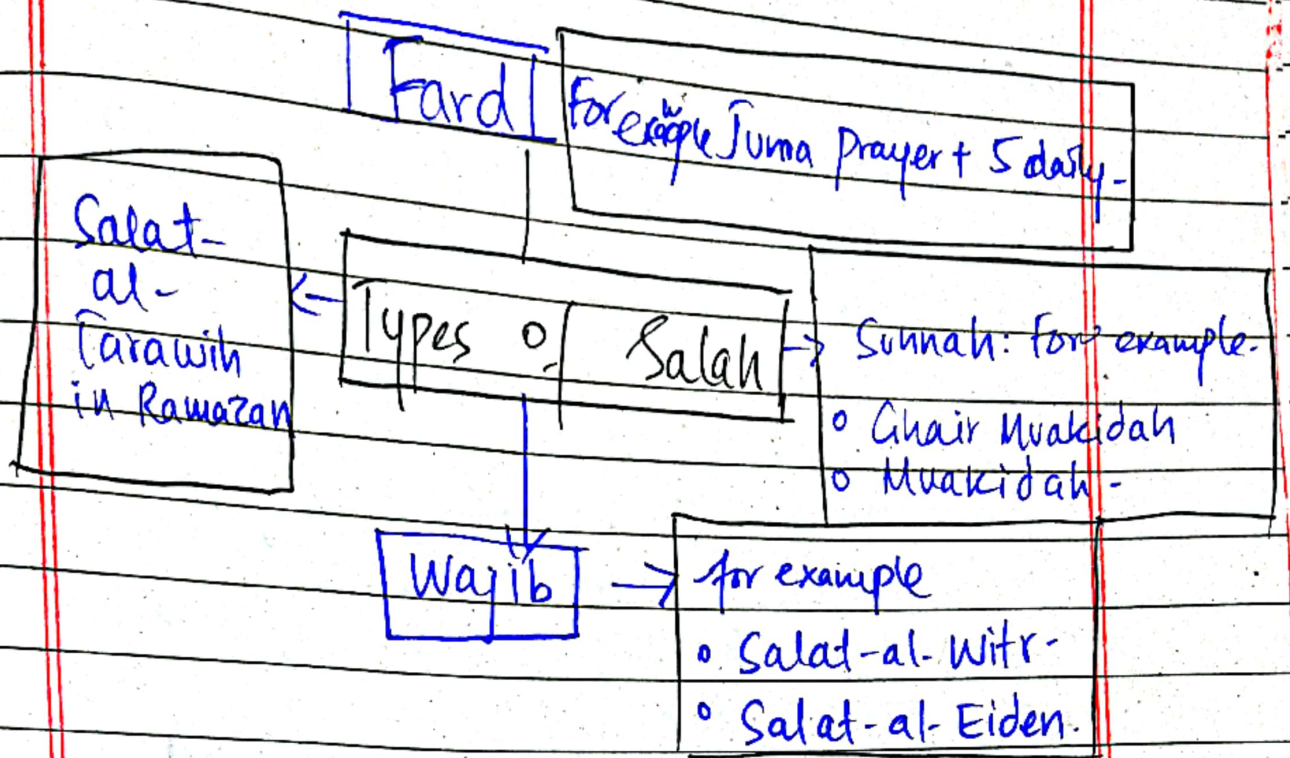 Fard
For example Juma prayer + 5 daily-
Salat-
al-
Tarawih
in Ramazan
Types of Salah
Sunnah: For example.
Ghair Muakidah
Muakidah -
Wajib
for example
Salat-al-Witr-
Salat-al-Eiden.